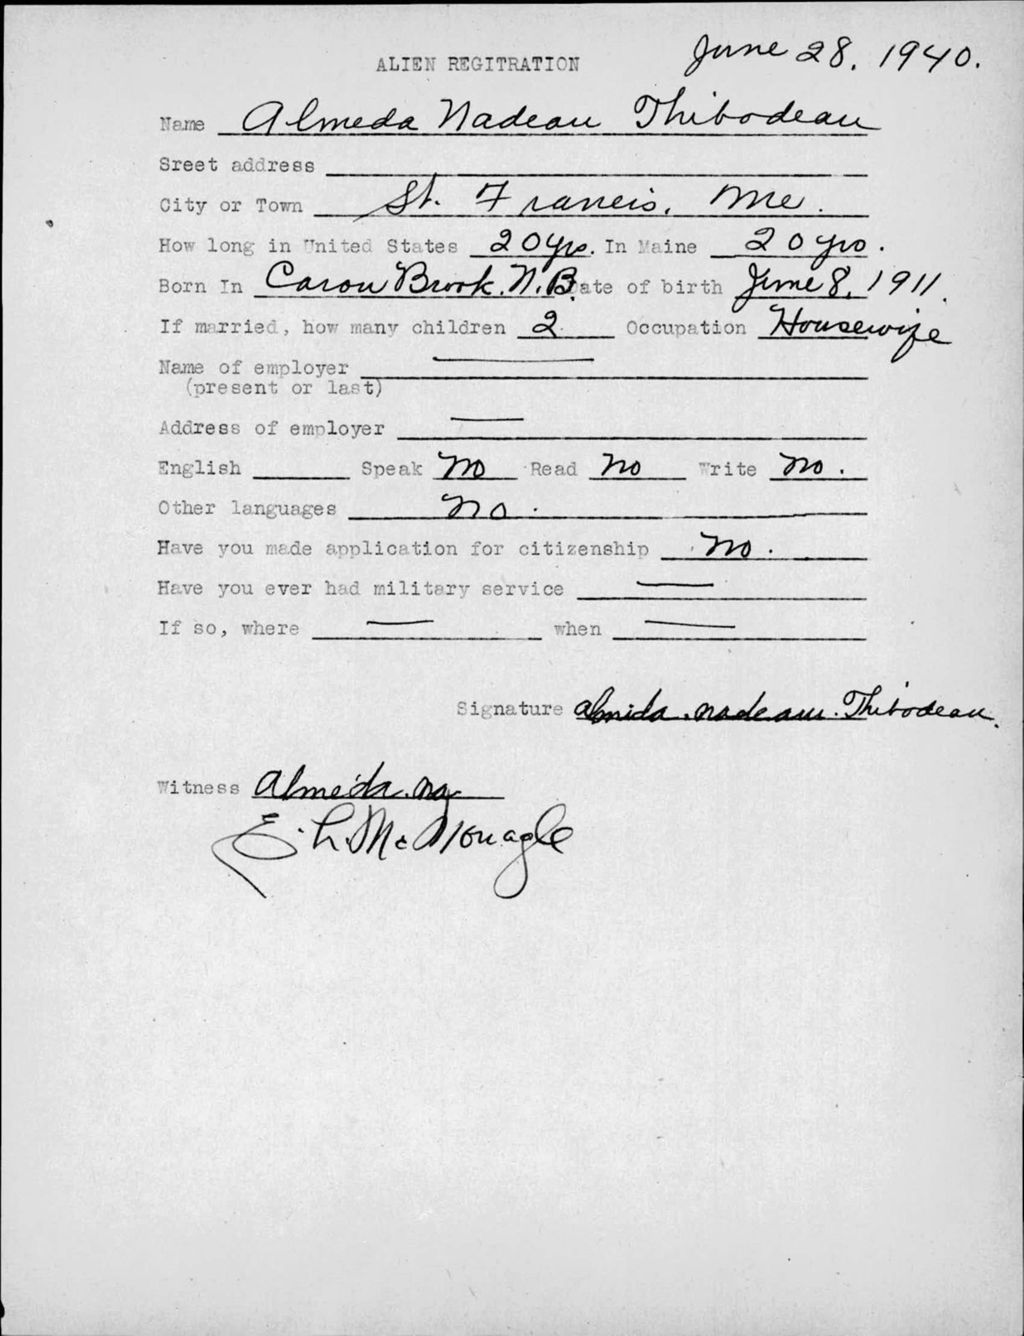 June 28, 1940.
ALIEN REGITRATION
Name Almeda Nadeau Thibodeau
Sreet address
City or Town St. Francis, Me.
How long in United States 20 yrs. In Maine 20 yrs.
Born In Caron Brook, N.B. Date of birth June 8, 1911.
If married, how many children 2 Occupation Housewife
Name of employer
(present or last)
Address of employer
English Speak No Read No Write No.
Other languages No.
Have you made application for citizenship No.
Have you ever had military service
If so, where when
Signature Almida. Nadeau. Thibodeau.
Witness Almeda. Na
E. L. McMonagle